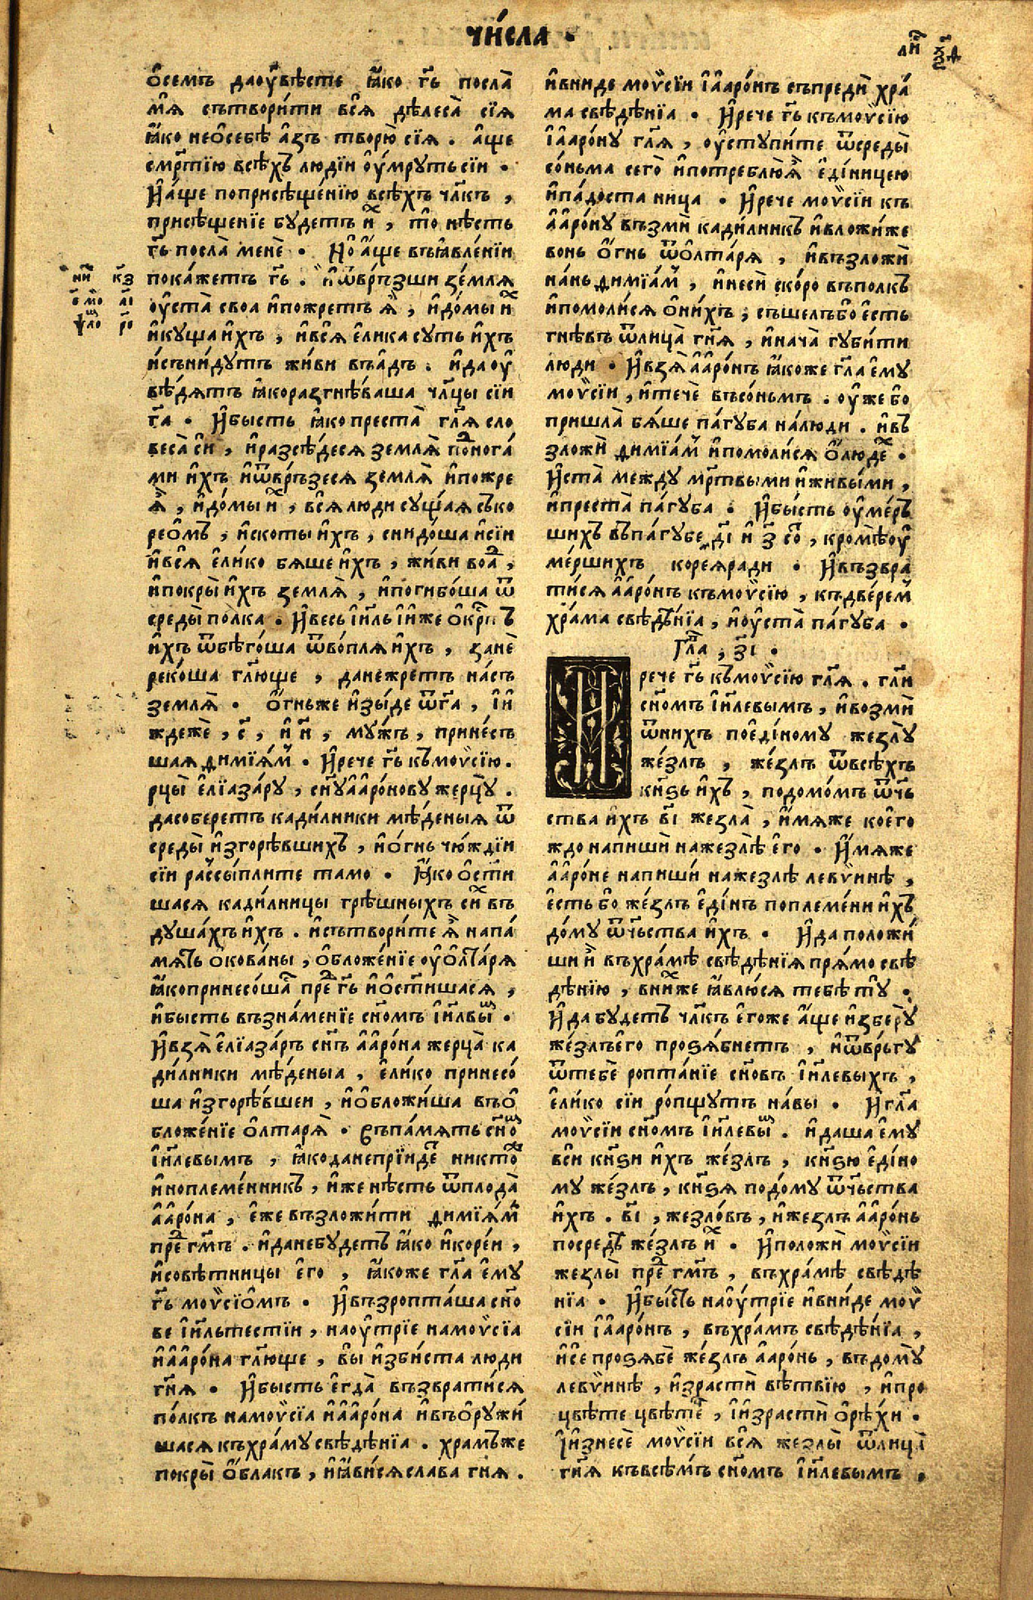 чи́сла .
ли҃
о́семъ даоувѣсте ꙗ҆́ко гь҃ посла̀
мѧ̀ сътвори́ти всѧ̀ дѣлеса̀ сїѧ
ꙗ҆́ко неѡ҆себѣ а҆́зъ творю̀ сїѧ . а҆́ще
сме́ртїю всѣ́хъ людїи оу҆́мрутьсїи .
И҆а҆́ще поприсѣще́нїю всѣ́хъ чл҃къ ,
присѣще́нїе бу́детъ и҆́х , то нѣ́сть
гь҃ посла̀ менѐ . Но а҆́ще въꙗ҆вле́нїи
пока́жетъ гь҃ . и҆ѿвръ́зши землѧ̀
оу҆ста̀ своѧ и҆пожретъ ѧ҆̀ , и҆до́мы и҆́х
и҆куща и҆́хъ , и҆всѧ̀ е҆ли́ка суть и҆́хъ
и҆съни́дутъ жи́ви въа҆́дъ . и҆да оу
вѣ́дѧтъ ꙗ҆́коразгнѣ́ваша чл҃цы сїи
га҃ . И҆бысть ꙗ҆́ко преста̀ гл҃ѧ сло
веса̀ сїи , и҆разсѣ́десѧ землѧ̀ по́днога́
ми и҆́хъ и҆ѿвръ́зесѧ землѧ̀ и҆пожре
ѧ҆̀ , и҆до́мы и҆́х , всѧ̀ люди су́щаѧ съко
рео́мъ , и҆скоты и҆́хъ , снидо́ша и҆сїи
и҆всѧ̀ е҆ли́ко бѧ́ше и҆́хъ , жи́ви воа́д ,
и҆покры̀ и҆́хъ землѧ̀ , и҆погибо́ша ѿ
среды̀ по́лка . И҆весь і҆и҃ль и҆́же о҆́крⷭтъ
и҆́хъ ѿбѣго́ша ѿво́плѧ и҆́хъ , занѐ
реко́ша гл҃юще , данежретъ на́съ
землѧ̀ . Ѻ҆́гньже и҆зы́де ѿга҃ , і҆и
ждежѐ , с҃ , и҆ н҃ , му́жъ , прине́съ
шаѧ димїѧ́мъ . И҆рече гь҃ къмоѵсїю .
рцы̀ е҆лїаза́ру , сн҃уа҆аро́новужерцу̀ .
дасоберетъ кади́лники мѣ́деныѧ ѿ
среды̀ и҆згорѣ́вшихъ , и҆ѻ҆́гнь чю́ждїи
сїи разсы́плите та́мо . ꙗ҆́ко ѡ҆ст҃и
шасѧ кади́лницы грѣ́шныхъ си́х въ
душа́хъ и҆́хъ . и҆сътвори́те ѧ҆̀ напа́
мѧть ѡ҆кова́ны , ѡ҆бложе́нїе оуо҆лтарѧ̀
ꙗ҆́копринесо́ша пре́д гь҃ и҆ѡ҆ст҃и́шасѧ ,
и҆бысть възна́менїе сн҃омъ і҆и҃лвы́м .
И҆взѧ̀ е҆лїаза́ръ сн҃ъ а҆аро́на жерца̀ ка
ди́лники мѣ́деныа , е҆ли́ко принесо́
ша и҆згорѣ́вшеи , и҆ѡ҆бложи́ша въо
бложе́нїе о҆лтарѧ̀ . въпа́мѧть сн҃ом
і҆и҃левымъ , ꙗ҆́коданепрїи́дет никто́ж
и҆ноплеме́нникъ , и҆́же нѣ́сть ѿплода̀
а҆аро́на , е҆́же възложи́ти димїѧ́мъ
пре́д гм҃ъ . и҆данебу́детъ ꙗ҆́ко и҆коре́и ,
и҆совѣ́тницы е҆го , ꙗ҆́коже гл҃а е҆му
гь҃ моѵсїо́мъ . И҆възропта́ша сн҃о
ве і҆и҃льтестїи , наоу҆́трїе намоѵсїа
и҆а҆аро́на гл҃юще , вы̀ и҆зби́ста люди
гн҃ѧ . И҆бысть е҆гда̀ възврати́сѧ
по́лкъ намоѵсїа и҆а҆аро́на и҆въѻ҆ружи́
шасѧ къхра́му свѣдѣ́нїа . хра́мъже
покры̀ ѻ҆́блакъ , и҆ꙗ҆ви́сѧсла́ва гн҃ѧ .
ни҃ кз҃
и҆вни́де моѵсїи і҆а҆аро́нъ съпреди хра́
ма свѣдѣ́нїа . И҆рече гь҃ къмоѵсїю
і҆а҆аро́ну гл҃ѧ , оу҆ступи́те ѿсреды̀
со́ньма сего̀ и҆потреблю̀ѧ҆̀ е҆ди́ницею
и҆па́доста ница . И҆рече моѵсїи къ
а҆аро́ну възмѝ кади́лникъ и҆вложи́же
вонь ѻ҆́гнь ѿо҆лтарѧ̀ , и҆възложѝ
на́нь димїа́м , и҆несѝ ско́ро въполкъ
и҆помоли́сѧ ѡ҆ни́хъ , съше́лъбо е҆́сть
гнѣ́въ ѿлица̀ гн҃ѧ , и҆нача̀ губи́ти
люди . И҆взѧ̀ а҆аро́нъ ꙗ҆́коже гл҃а е҆му
моѵсїи , и҆течѐ въсо́ньмъ . оу҆́же бо
пришла̀ бѧ́ше па́губа на́люди . и҆въ
зложѝ димїа́м и҆помоли́сѧ ѡ҆ лю́дех .
И҆ста̀ между мр҃твыми и҆живы́ми ,
и҆преста̀ па́губа . И҆бысть оу҆ме́рь
шихъ въпа́губе , д҃і и҆ з҃ со́т , кромѣоу
ме́ршихъ коре́ѧради . И҆възвра
ти́сѧ а҆аро́нъ къмоѵсїю , къдверем
хра́ма свѣдѣ́нїа , и҆оу҆ста̀ па́губа .
Гла́в , з҃і .
И рече гь҃ къмоѵсїю гл҃ѧ . гл҃и
сн҃омъ і҆и҃левымъ , и҆возмѝ
ѿни́хъ поеди́ному жезлу̀
же́злъ , же́злъ ѿвсѣ́хъ
кн҃ѕь и҆́хъ , подомо́мъ ѿч҃ь
ства и҆́хъ в҃і жезла̀ , и҆́мѧже кое́го
ждо напишѝ нажезлѣ̀ е҆го . И҆́мѧже
а҆аро́не напишѝ нажезлѣ̀ левѵинѣ ,
е҆́сть бо же́злъ е҆ди́нъ поплеме́ни и҆́хъ
до́му ѿч҃ьства и҆́хъ . И҆да положи́
ши и҆̀ въхра́мѣ свѣдѣ́нїѧ прѧ́мо свѣ
дѣ́нїю , вни́хже ꙗ҆влю́сѧ тебѣ̀ ту .
И҆да бу́детъ чл҃къ е҆го́же а҆́ще и҆зберу̀
же́злъего̀ проѕѧ́бнетъ , и҆ѿвръгу̀
ѿтебѐ ропта́нїе сн҃овъ і҆и҃левыхъ ,
е҆ли́ко сїи ро́пщутъ на́вы . И҆ гл҃а
моѵсїи сн҃омъ і҆и҃левы́м . и҆даша е҆му
вси кн҃ѕи и҆́хъ же́злъ , кн҃ѕю е҆ди́но
му же́злъ , кн҃ѕѧ подо́му ѿч҃ьства
и҆́хъ . в҃і , жезло́въ , и҆жезлъ а҆аро́нь
посредѣ̀ же́злъ и҆́х . И҆положѝ моѵсїи
жезлы̀ пре́д гм҃ъ , въхра́мѣ свѣдѣ
нїа . И҆бы́сть наоу҆́трїе и҆вни́де моѵ
сїи і҆а҆аро́нъ , въхра́мъ свѣдѣ́нїа ,
и҆сѐ проѕѧбѐ же́злъ а҆аро́нь , въдому̀
левѵинѣ , и҆зрастѝ вѣ́твїю , и҆про
цвѣте цвѣ́тец , і҆и҆зрастѝ ѻ҆рѣ́хи .
І҆и҆знесѐ моѵсїи всѧ̀ жезлы̀ ѿлица̀
гн҃ѧ къвсѣ́мъ сн҃омъ і҆и҃левымъ .